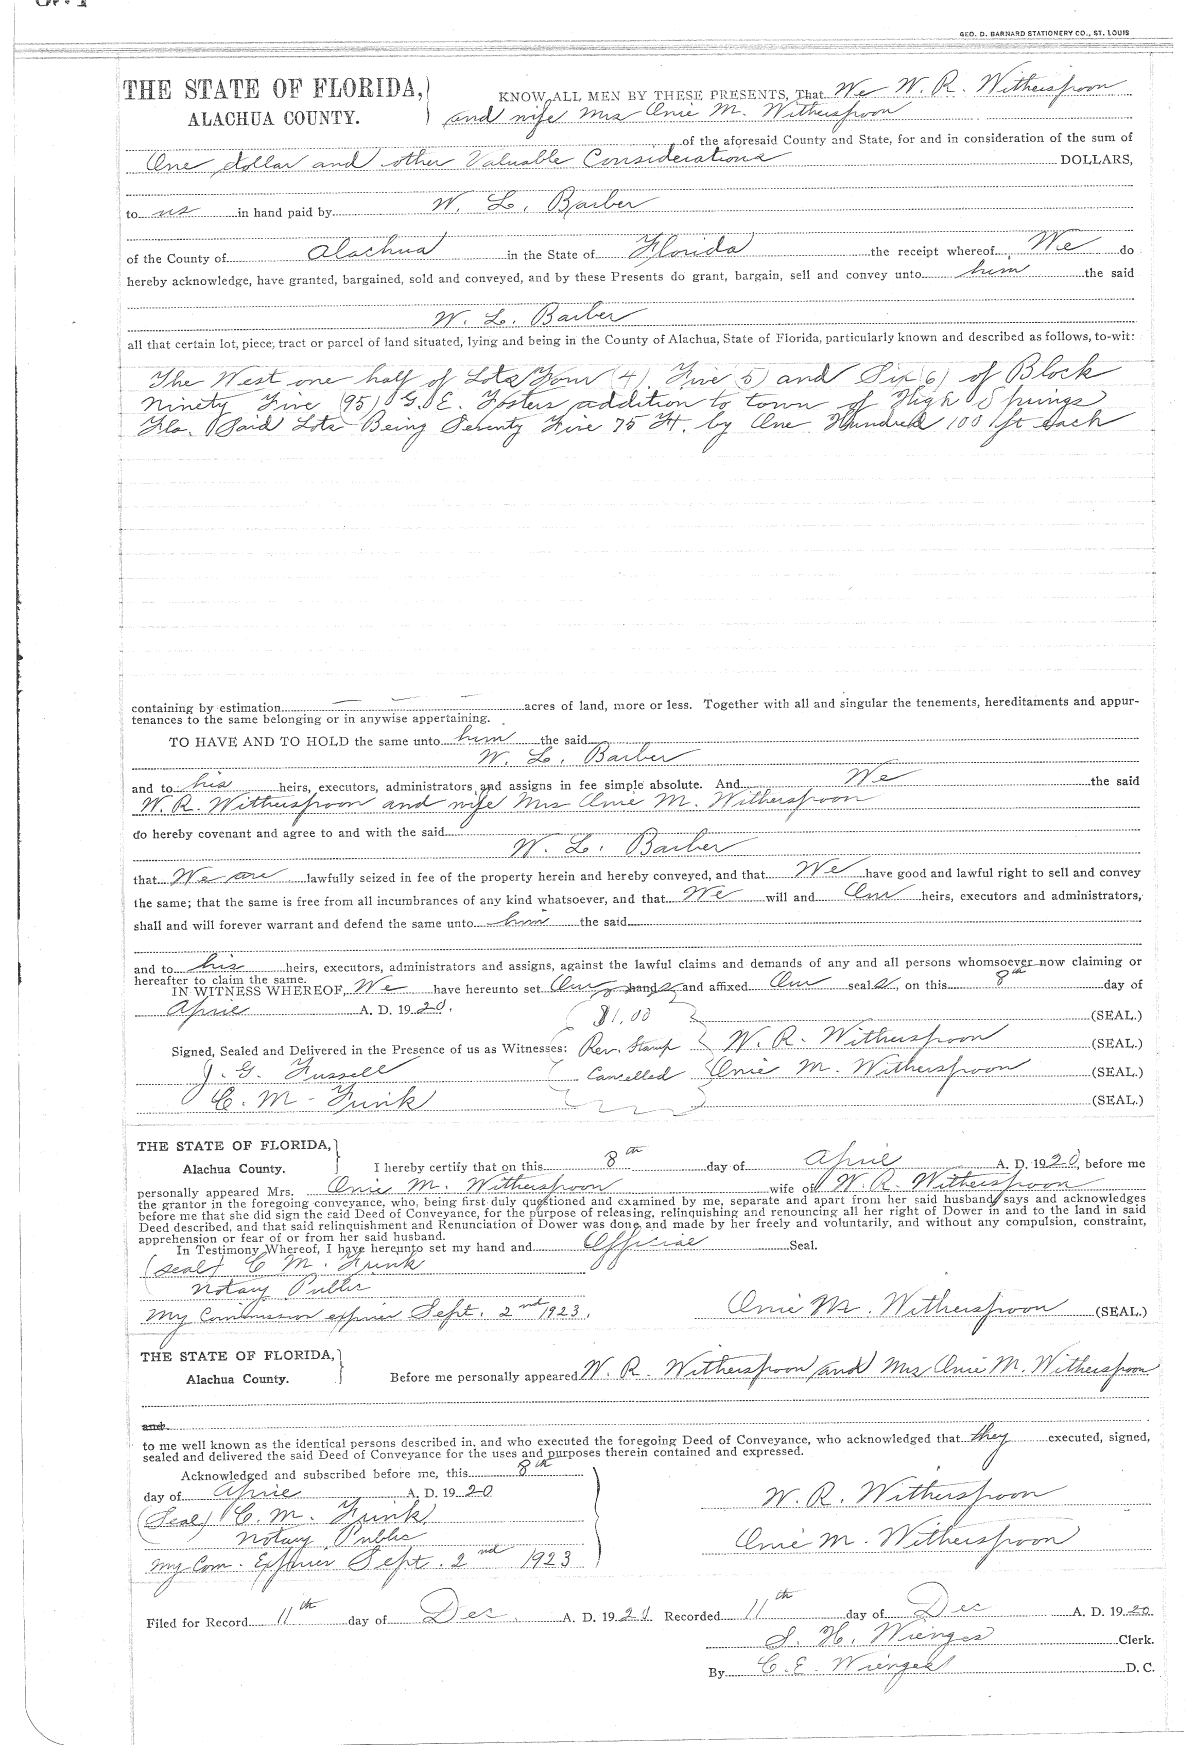 GEO. D. BARNARD STATIONERY CO., ST. LOUIS
THE STATE OF FLORIDA,
ALACHUA COUNTY.
KNOW ALL MEN BY THESE PRESENTS, That We W. R. Witherspoon
and wife Mrs Onie M. Witherspoon
of the aforesaid County and State, for and in consideration of the sum of
One dollar and other Valuable Considerations DOLLARS,
to us in hand paid by W. L. Barber
of the County of Alachua in the State of Florida the receipt whereof We do
hereby acknowledge, have granted, bargained, sold and conveyed, and by these Presents do grant, bargain, sell and convey unto him the said
W. L. Barber
all that certain lot, piece, tract or parcel of land situated, lying and being in the County of Alachua, State of Florida, particularly known and described as follows, to-wit:
The West one half of Lots Four (4), Five (5) and Six (6) of Block
Ninety Five (95) G. E. Fosters addition to town of High Springs
Fla. Said Lots Being Seventy Five 75 Ft. by One Hundred 100 ft each
containing by estimation acres of land, more or less. Together with all and singular the tenements, hereditaments and appur-
tenances to the same belonging or in anywise appertaining.
TO HAVE AND TO HOLD the same unto him the said
W. L. Barber
and to his heirs, executors, administrators and assigns in fee simple absolute. And We the said
W. R. Witherspoon and wife Mrs Onie M. Witherspoon
do hereby covenant and agree to and with the said
W. L. Barber
that We are lawfully seized in fee of the property herein and hereby conveyed, and that We have good and lawful right to sell and convey
the same; that the same is free from all incumbrances of any kind whatsoever, and that We will and Our heirs, executors and administrators,
shall and will forever warrant and defend the same unto him the said
and to his heirs, executors, administrators and assigns, against the lawful claims and demands of any and all persons whomsoever now claiming or
hereafter to claim the same.
IN WITNESS WHEREOF, We have hereunto set Our hands and affixed Our seals, on this 8th day of
April A. D. 1920.
$1.00 (SEAL.)
Signed, Sealed and Delivered in the Presence of us as Witnesses: Rev. Stamp W. R. Witherspoon (SEAL.)
J. G. Fussell Cancelled Onie M. Witherspoon (SEAL.)
C. M. Funk (SEAL.)
THE STATE OF FLORIDA,
Alachua County. I hereby certify that on this 8th day of April A. D. 1920, before me
personally appeared Mrs. Onie M. Witherspoon wife of W. R. Witherspoon
the grantor in the foregoing conveyance, who, being first duly questioned and examined by me, separate and apart from her said husband, says and acknowledges
before me that she did sign the said Deed of Conveyance, for the purpose of releasing, relinquishing and renouncing all her right of Dower in and to the land in said
Deed described, and that said relinquishment and Renunciation of Dower was done and made by her freely and voluntarily, and without any compulsion, constraint,
apprehension or fear of or from her said husband.
In Testimony Whereof, I have hereunto set my hand and Official Seal.
(Seal) C M. Funk
Notary Public
My Commission expires Sept. 2nd 1923. Onie M. Witherspoon (SEAL.)
THE STATE OF FLORIDA,
Alachua County. Before me personally appeared W. R. Witherspoon and Mrs Onie M. Witherspoon
and
to me well known as the identical persons described in, and who executed the foregoing Deed of Conveyance, who acknowledged that they executed, signed,
sealed and delivered the said Deed of Conveyance for the uses and purposes therein contained and expressed.
Acknowledged and subscribed before me, this 8th
day of April A. D. 1920
(Seal) C. M. Funk
Notary Public
My Com. Expires Sept. 2nd 1923
W. R. Witherspoon
Onie M. Witherspoon
Filed for Record 11th day of Dec. A. D. 1920. Recorded 11th day of Dec A. D. 1920.
S. H. Wienges Clerk.
By C. E. Wienges D. C.